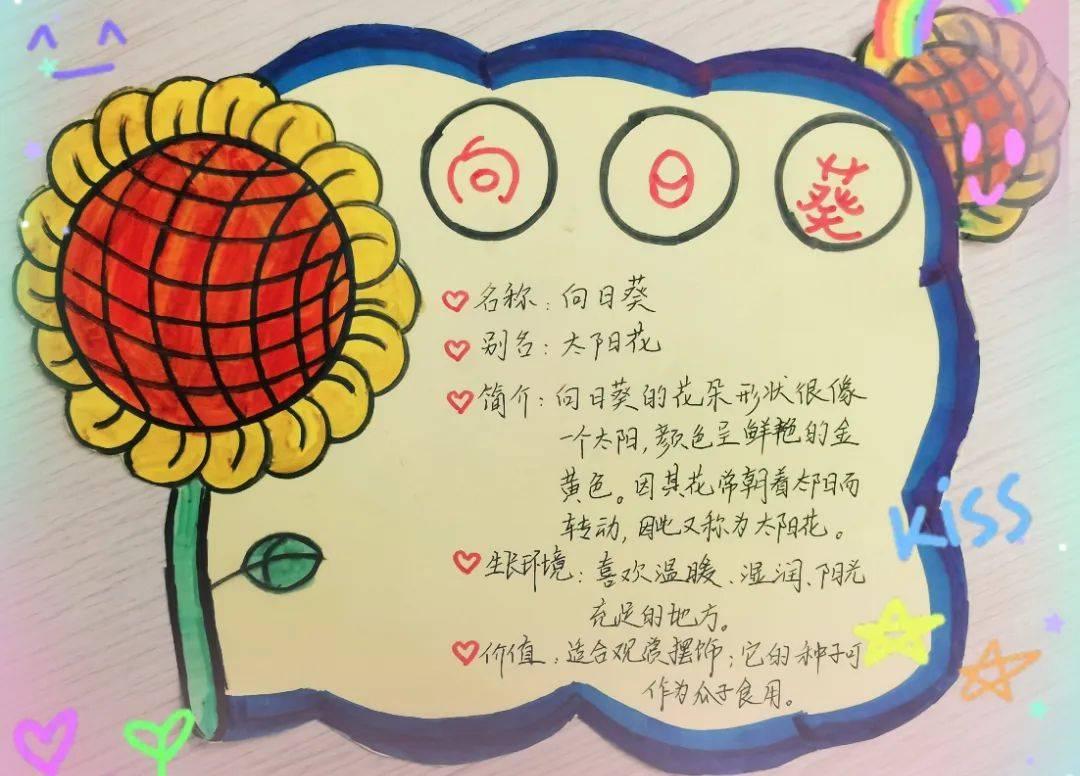 向日葵
名称：向日葵
别名：太阳花
简介：向日葵的花朵形状很像
一个太阳，颜色呈鲜艳的金
黄色。因其花常朝着太阳而
转动，因此又称为太阳花。
生长环境：喜欢温暖、湿润、阳光
充足的地方。
价值：适合观赏摆饰；它的种子可
作为瓜子食用。
kiss